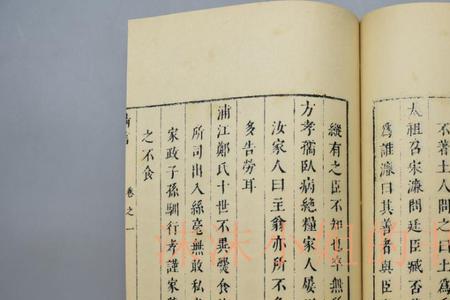 不著土人問之曰土爲
太祖召宋濂問廷臣臧否
爲誰濂曰其善者與臣
縱有之臣不知也卒無
方孝孺臥病絶糧家人屢
汝家人曰主翁亦所不
多告勞耳
浦江鄭氏十世不異爨食
所司出入絲毫無敢私
家政子孫馴行孝謹家
之不食
卷之一